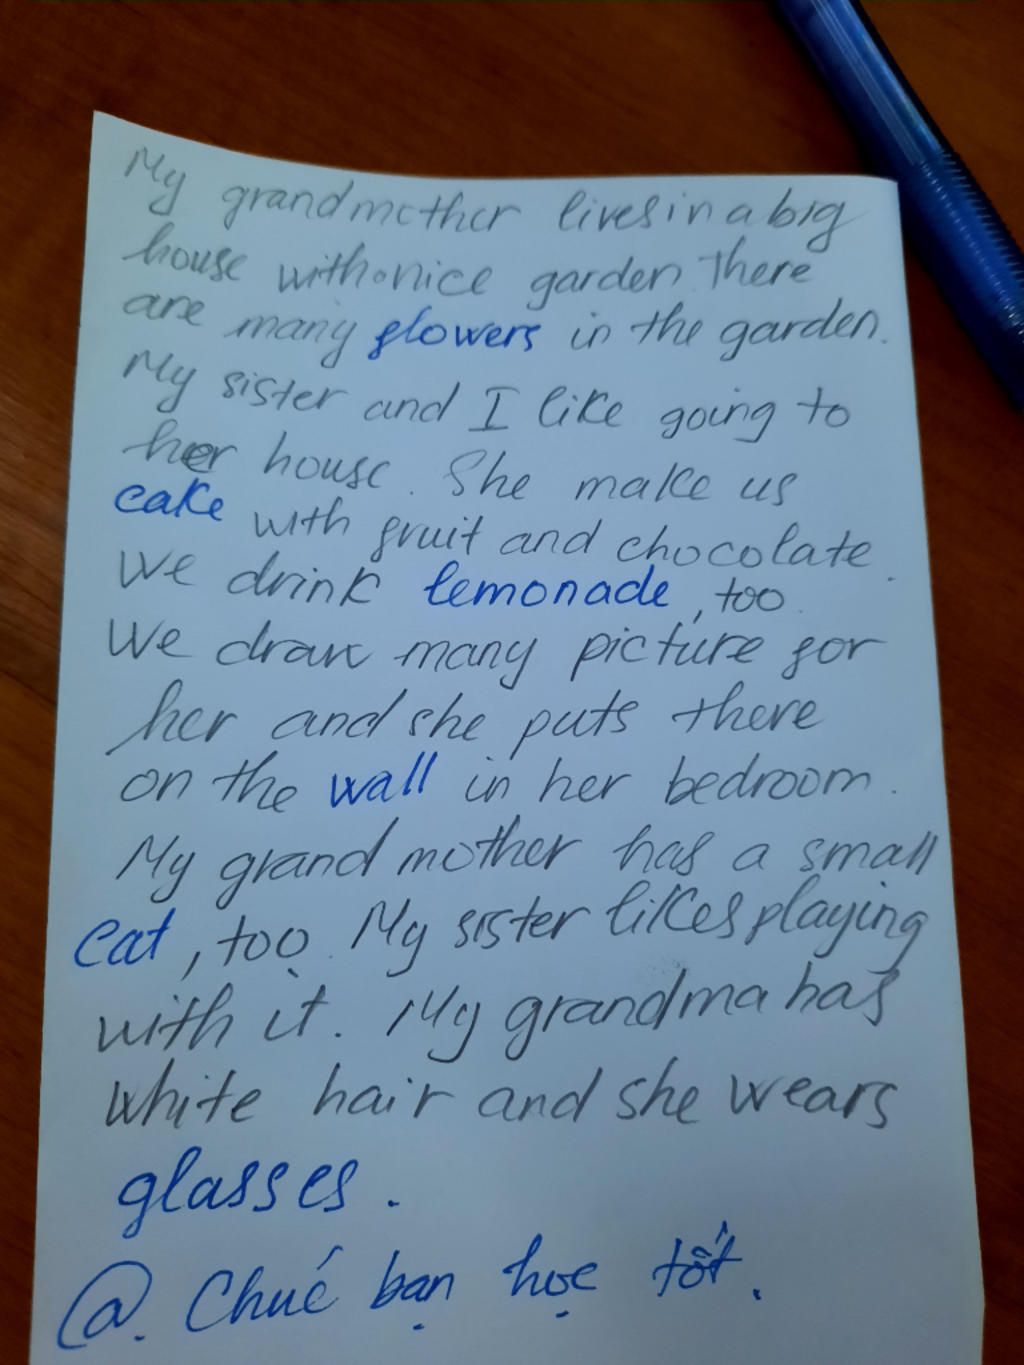 My grandmother lives in a big
house with a nice garden. There
are many flowers in the garden.
My sister and I like going to
her house. She make us
cake with fruit and chocolate.
We drink lemonade, too.
We draw many picture for
her and she puts there
on the wall in her bedroom.
My grand mother has a small
cat, too. My sister likes playing
with it. My grandma has
white hair and she wears
glasses.
@. Chúc bạn học tốt.